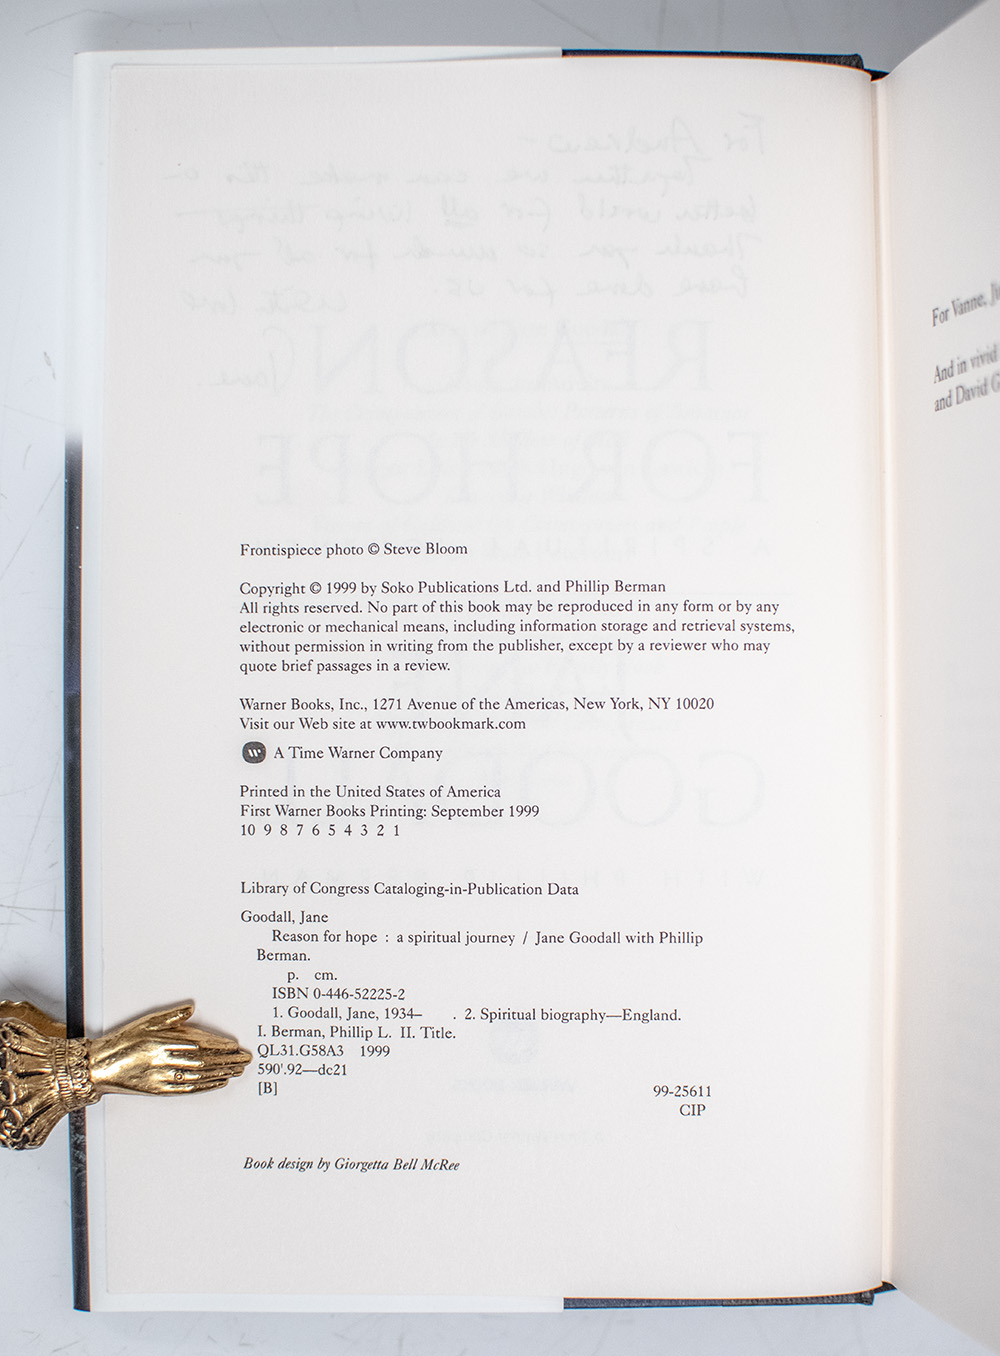 Frontispiece photo © Steve Bloom
Copyright © 1999 by Soko Publications Ltd. and Phillip Berman
All rights reserved. No part of this book may be reproduced in any form or by any
electronic or mechanical means, including information storage and retrieval systems,
without permission in writing from the publisher, except by a reviewer who may
quote brief passages in a review.
Warner Books, Inc., 1271 Avenue of the Americas, New York, NY 10020
Visit our Web site at www.twbookmark.com
A Time Warner Company
Printed in the United States of America
First Warner Books Printing: September 1999
10 9 8 7 6 5 4 3 2 1
Library of Congress Cataloging-in-Publication Data
Goodall, Jane
Reason for hope : a spiritual journey / Jane Goodall with Phillip
Berman.
p. cm.
ISBN 0-446-52225-2
1. Goodall, Jane, 1934– . 2. Spiritual biography—England.
I. Berman, Phillip L. II. Title.
QL31.G58A3 1999
590'.92—dc21
[B]
99-25611
CIP
Book design by Giorgetta Bell McRee
For Vanne,
And in vivid
and David